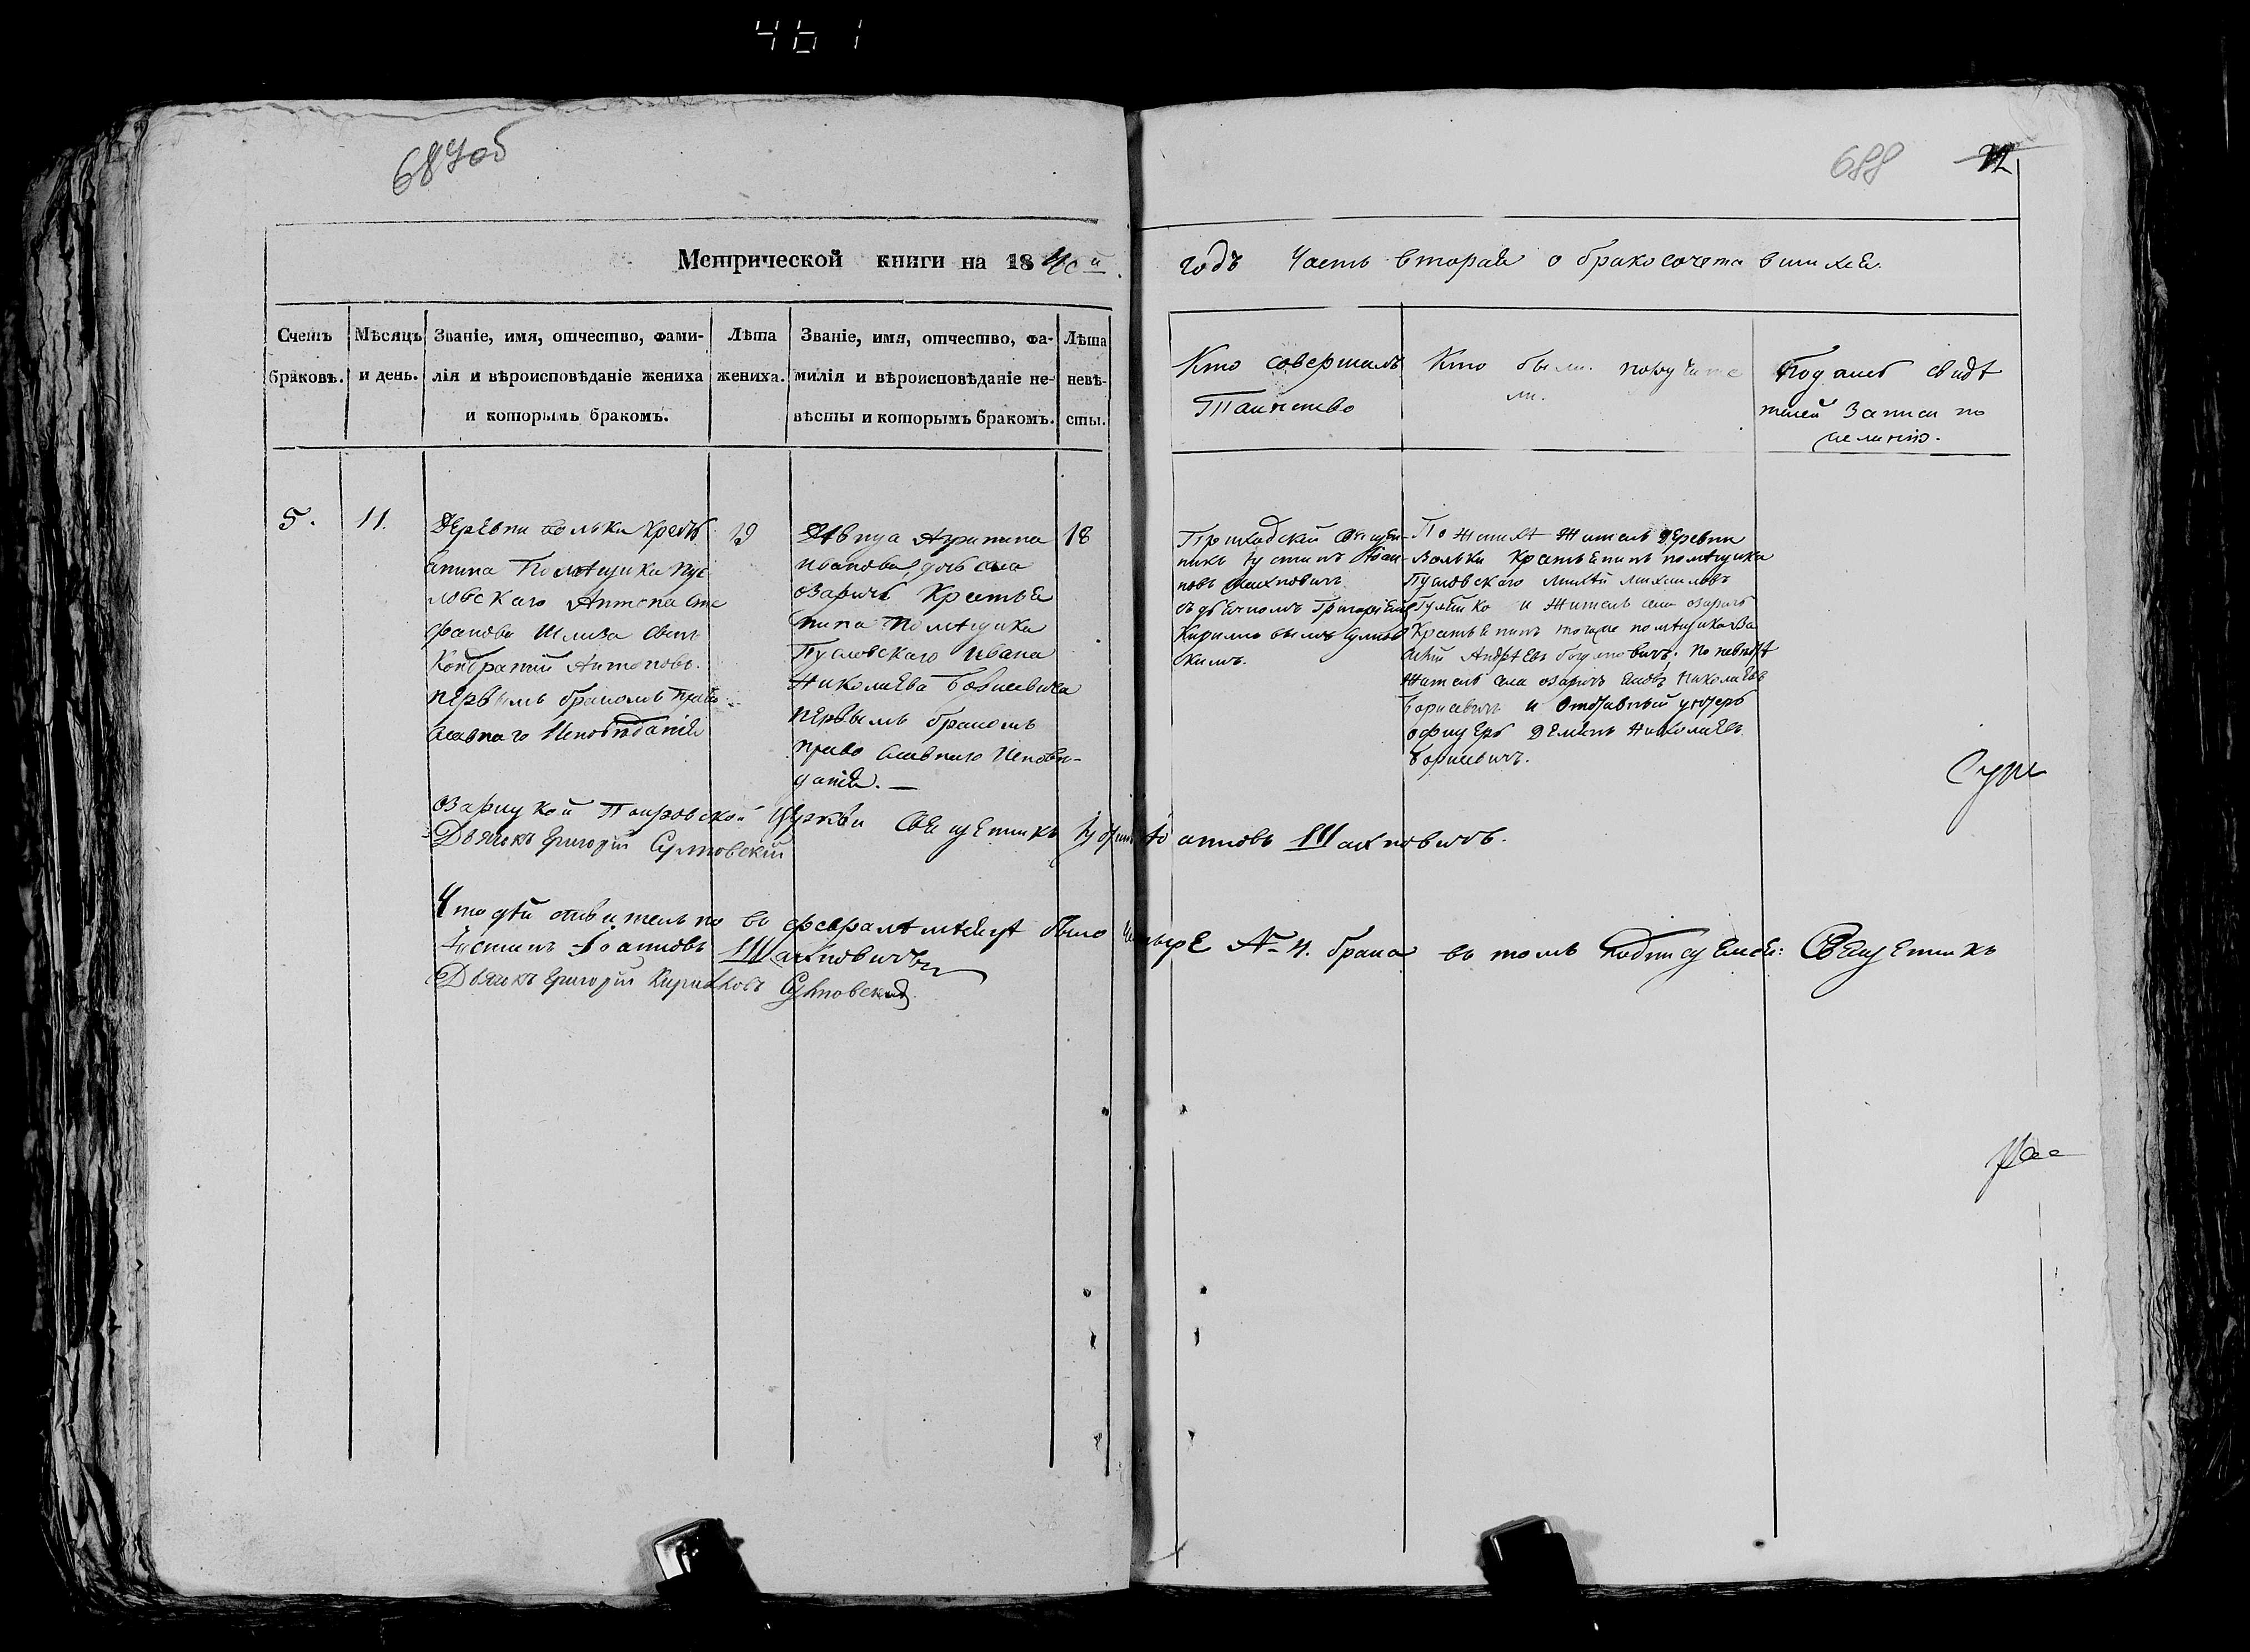 461
687об
688 72
Метрической книги на 1840й
годъ Часть вторая о бракосочетавшихся.
Счетъ браковъ.
Мѣсяцъ и день.
Званіе, имя, отчество, фами-
лія и вѣроисповѣданіе жениха
и которымъ бракомъ.
Лѣта
жениха.
Званіе, имя, отчество, фа-
милія и вѣроисповѣданіе не-
вѣсты и которымъ бракомъ.
Лѣта
невѣ-
сты.
Кто совершалъ
Таинство
Кто были поручите
ли.
свидѣ
телей записи по
5.
11.
Деревни Вольки Крестья
анина Помѣщика Пус
ловскаго Антона Сте
фанова Шлыза сынъ
Кондратій Антоновъ.
первымъ бракомъ право
славнаго Исповѣданія
19
Дѣвица Агрипина
Иванова, дочь села
Озаричъ Крестья
нина Помѣщика
Пусловскаго Ивана
Николаева Борисевича
первымъ бракомъ
право славнаго Исповѣ-
данія.—
18
Приходскій Священ-
никъ Іустинъ Іоан-
новъ Шахновичъ
съ дьячкомъ Григоріемъ
Кириловымъ
скимъ.
По женихѣ житель деревни
Вольки Крестьянинъ помѣщика
Пусловскаго Михаиловъ
и житель села Озаричъ
Крестьянинъ тогоже помѣщика Ва
силій Андрѣевъ Богдановичъ; по невѣстѣ
житель села Озаричъ Николаевъ
Борисевичъ и Отставный унтеръ
офицеръ Николаевъ
Борисевичъ.
Озарицкой Покровской Церкви Священникъ Іустинъ Іоанновъ Шахновичъ.
Дьячокъ Григорій
Что дѣйствительно въ февралѣ мѣсяцѣ было четыре № 4. брака въ томъ подписуемся: Священникъ
Іустинъ Іоанновъ Шахновичъ
Дьячокъ Григорій Кириловъ